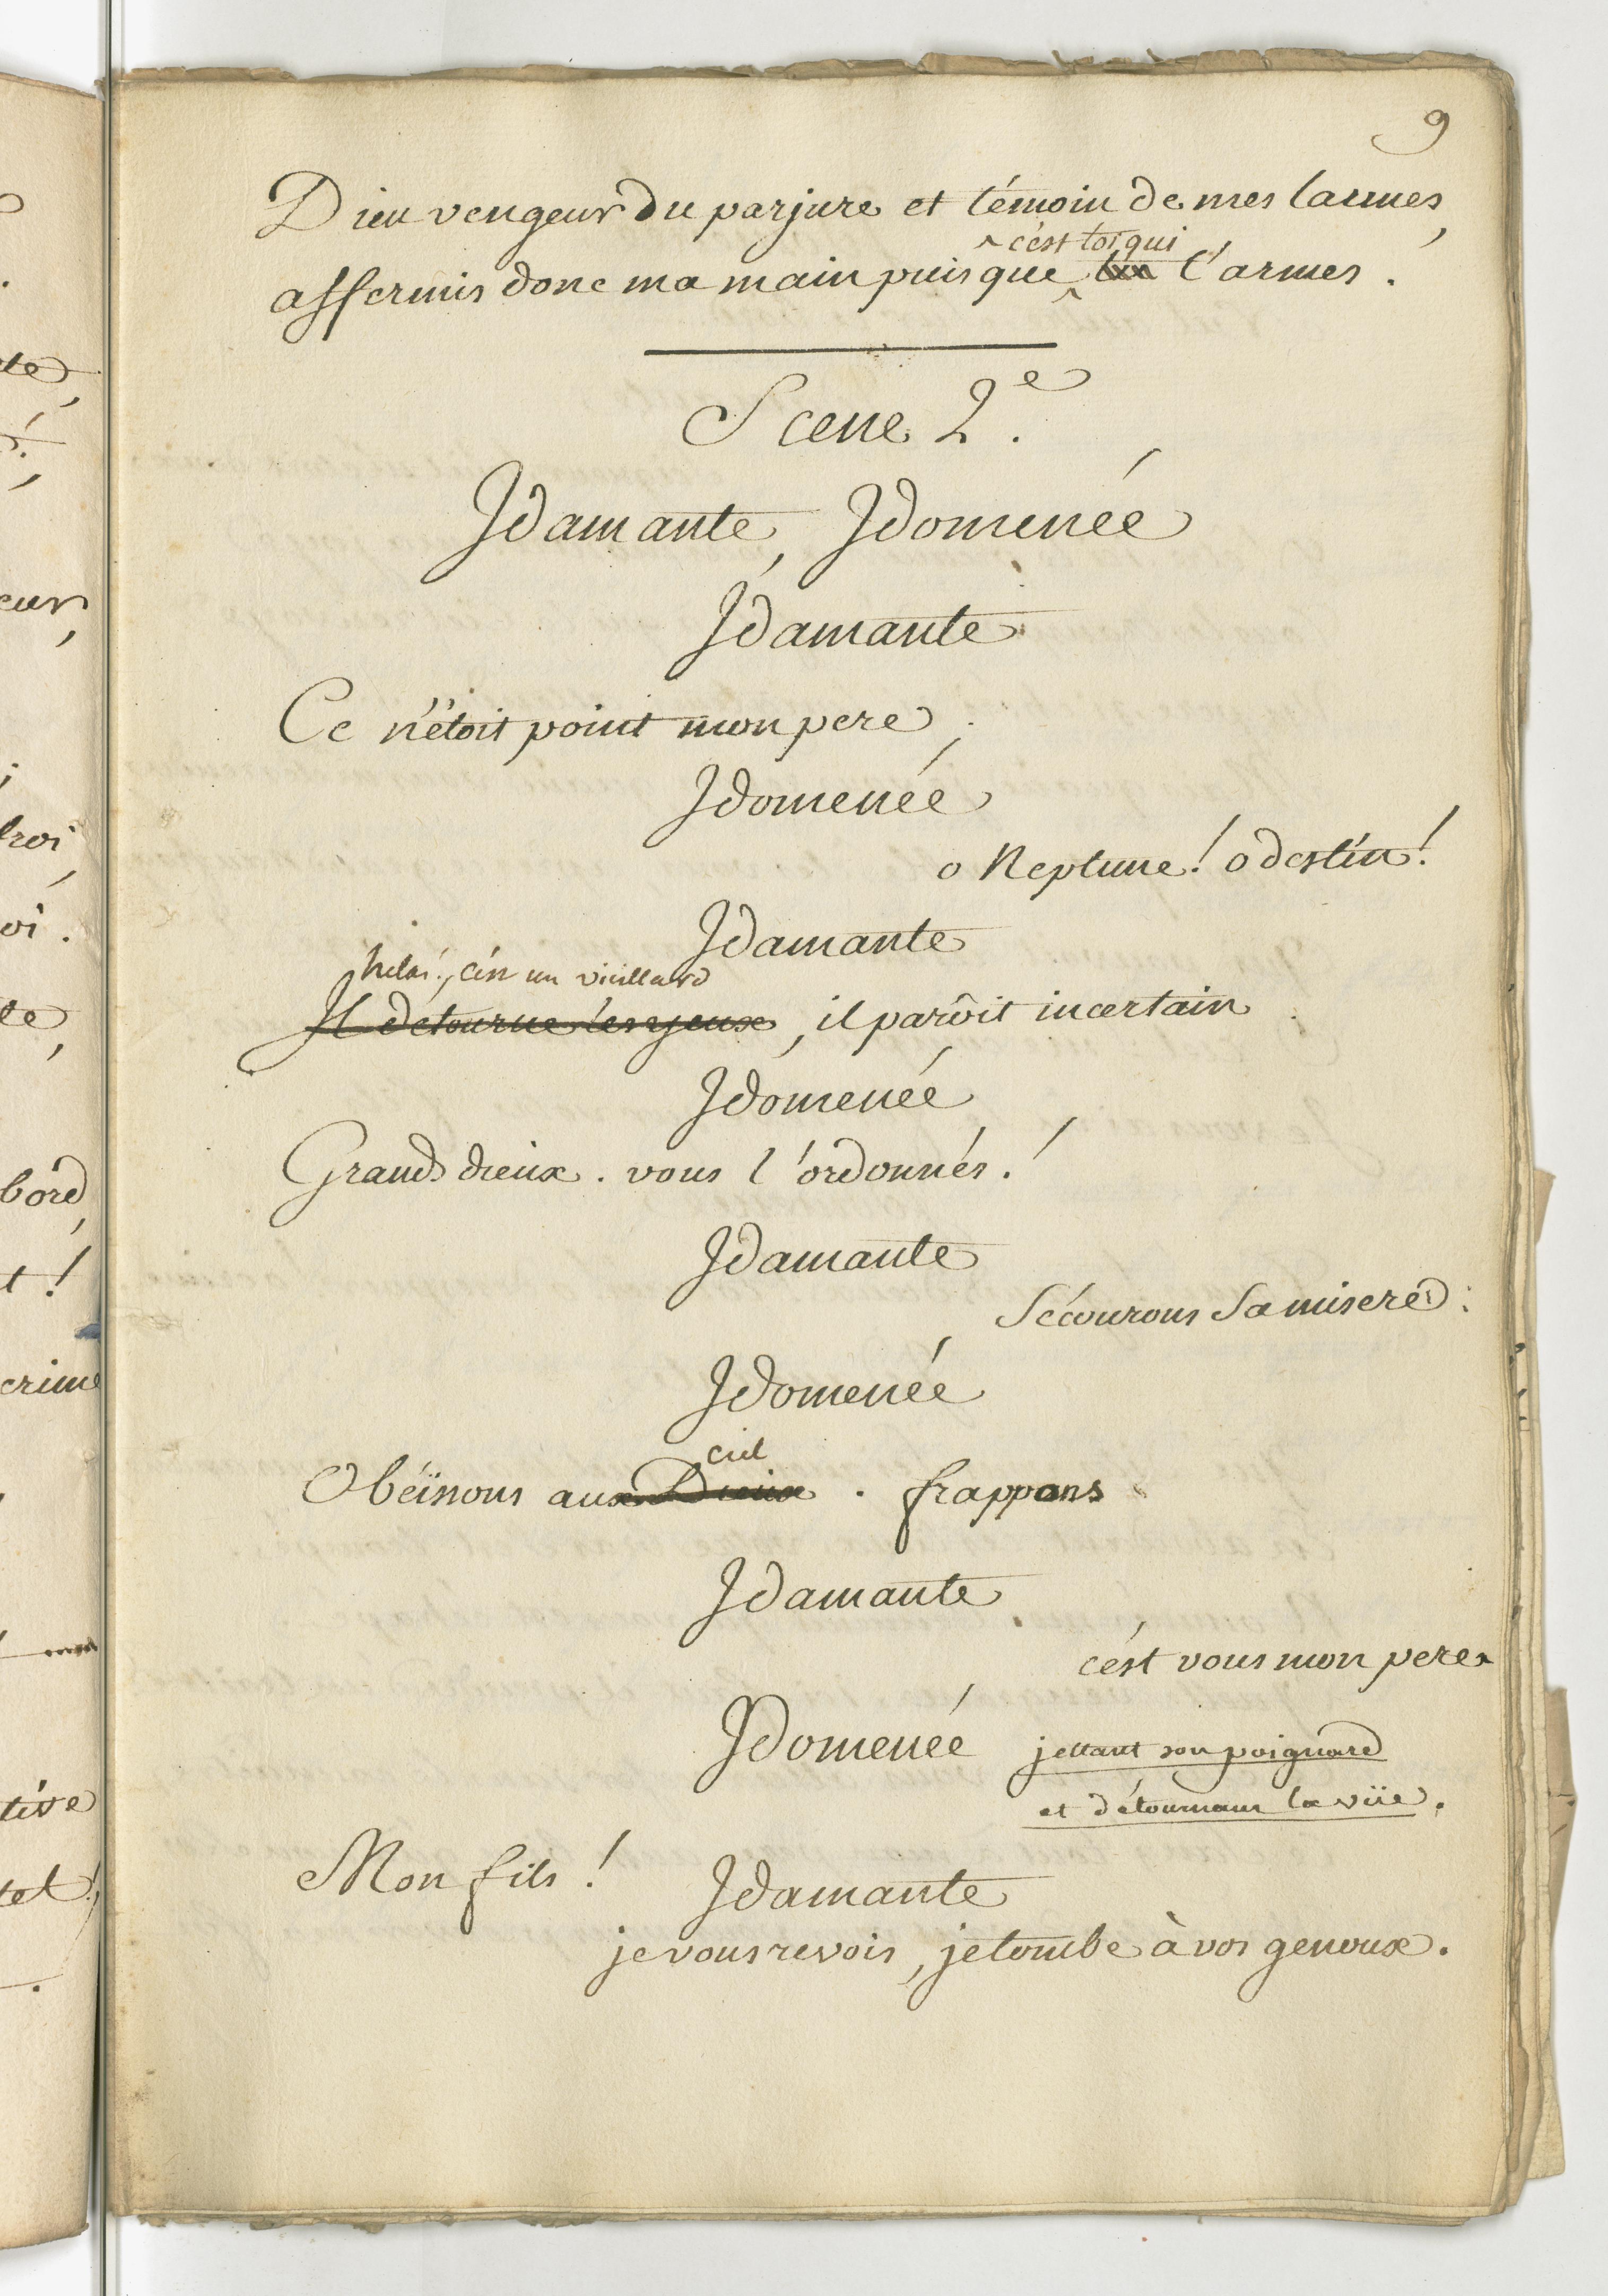 9
Dieu vengeur du parjure et témoin de mes larmes,
c'est toi qui
affermis donc ma main puisque l'armes.
Scene 2e.
Idamante, Idomenée
Idamante
Ce n'étoit point mon pere,
Idomenée
o Neptune! o destin!
Idamante
helas!, c'est un vieillard
Il detourne les yeux, il parôit incertain
Idomenée
Grands dieux. vous l'ordonnés!
Idamante
Sécourons Sa misere:
Idomenée
ciel
Obéissons aux Dieux. frappons
Idamante
c'est vous mon pere
Idomenée jettant son poignard
et détournant la vüe.
Mon fils!
Idamante
je vous revois, je tombe à vos genoux.